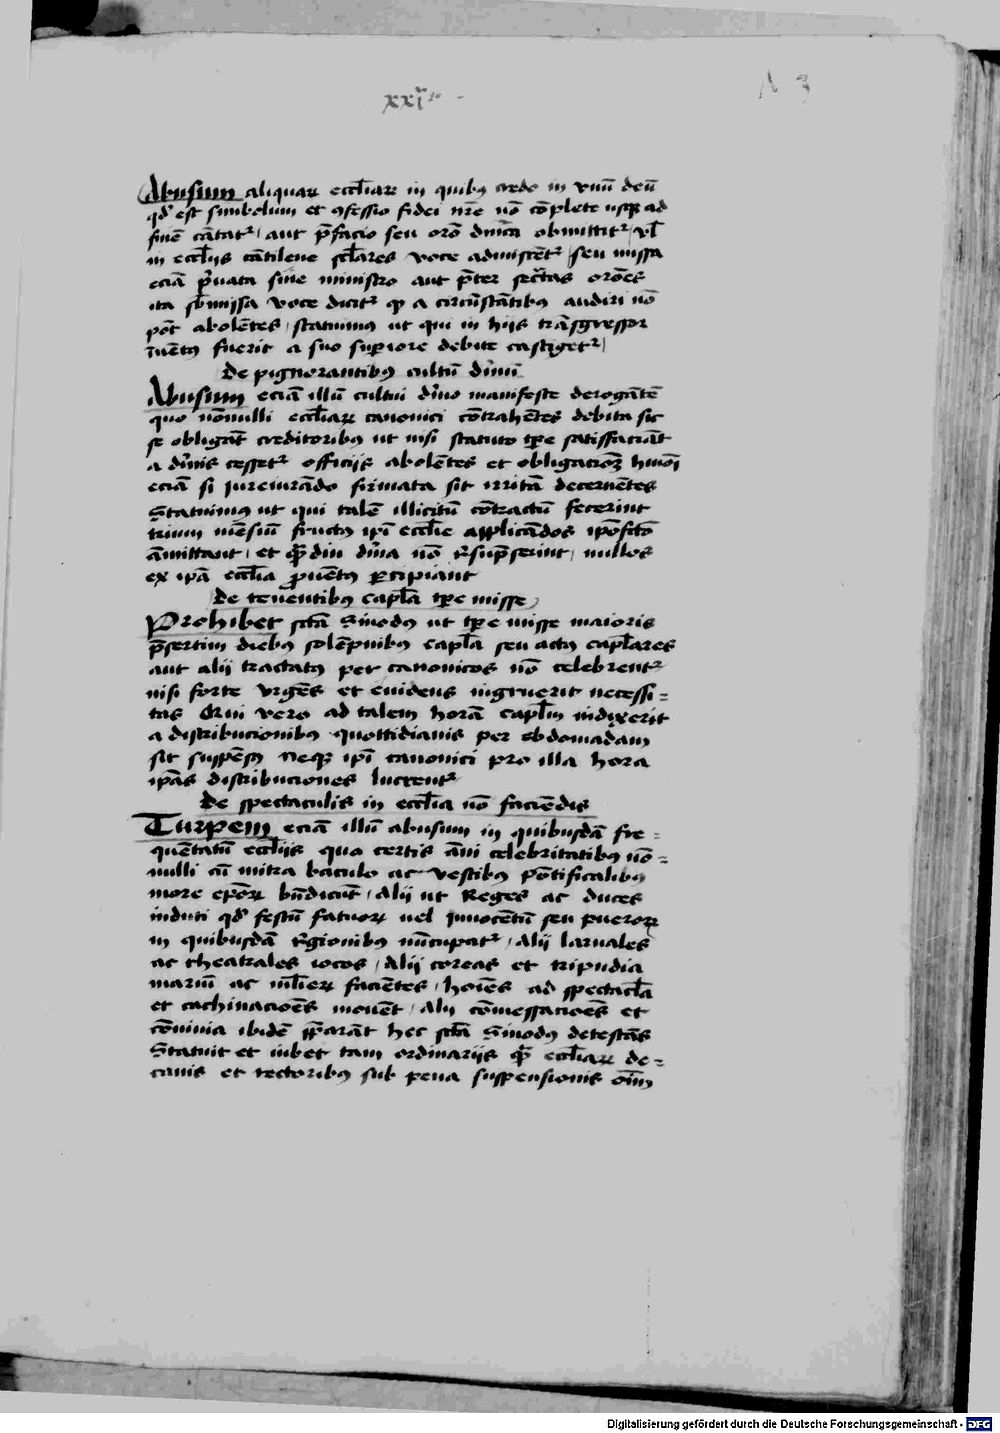 xxi
Abusum aliquaꝝ ecc̄liaꝝ in quibꝯ credo in vnū deū
qđ est simbolum et ꝯfessio fidei nr̄e nō cōplete usqꝫ ad
finē cātat᷑ / aut p̄facio seu orō dn̄ica obmittit᷑ / vl̄
in ecc̄liis cātilene sc̄lares voce admiscēt᷑ / seu missa
eciā p̱uata sine ministro aut p̄ter secͬtas orōes
ita sb̄missa voce dicit᷑ qꝫ a circūstātibꝯ audiri nō
pōt abolētes / statuimꝯ ut qui in hijs trāsgressor
īuētꝯ fuerit a suo suꝑiore debite castiget᷑ /
De pignorantibꝯ cultū diuinū
Abusum eciā illū cultui diuīo manifeste derogātē
quo nōnulli ecc̄liaꝝ canonici cōtrahētes debita sic
se obligāt creditoribꝯ ut nisi statuto tꝑe satisfaciāt
a diuīis cesset᷑ officijs abolētes et obligacionē hmōi
eciā si iureiurādo firmata sit irritā decernētes
Statuimꝯ ut qui talē illicitū cōtractū fecerint
trium mēsiū fructꝯ ip̄i ecc̄lie applicādos ip̄o fc̄o
āmittant / et qͣ̄diu diuīa nō r̄sūpserint / nullos
ex ip̄a ecc̄lia ꝓuētꝯ ꝑcipiant
De tenentibꝯ capl̄a tꝑe misse
Prohibet sc̄tā Sinodꝯ ut tꝑe misse maioris
p̄sertim diebꝯ solēpnibꝯ capl̄a seu actꝯ capl̄ares
aut alij tractatꝯ per canonicos nō celebrent᷑
nisi forte vrgēs et euidens ingruerit necessi=
tas Qui vero ad talem horā capl̄m indixerit
a distribucionibꝯ quottidianis per ebdomadam
sit suspēsꝯ Neqꝫ ip̄i canonici pro illa hora
ip̄as distribuciones lucrent᷑
De spectaculis in ecc̄lia nō faciēdis
Turpem eciā illū abusum in quibusdā fre=
quētatū ecc̄liis quo certis āni celebritatibꝯ nō=
nulli cū mitra baculo ac vestibꝯ pōtificalibꝯ
more epōꝝ bn̄dicūt / Alij ut Reges ac duces
induti qđ festū fatuoꝝ uel Innocētū seu pueroꝝ
in quibusdā r̄gionibꝯ nūcupat᷑ / Alij larnales
ac theatrales iocos / Alij coreas et tripudia
mariū ac ml̄ieꝝ faciētes / hoīes ad spectacl̄a
et cachinacioēs mouēt / Alij cōmessacioēs et
cōuiuia ibidē p̄parāt hec sc̄tā Sinodꝯ detestās
Statuit et iubet tam ordinarijs qͣ̄ ecc̄liaꝝ de=
canis et rectoribꝯ sub pena suspensionis oīm
Digitalisierung gefördert durch die Deutsche Forschungsgemeinschaft - DFG